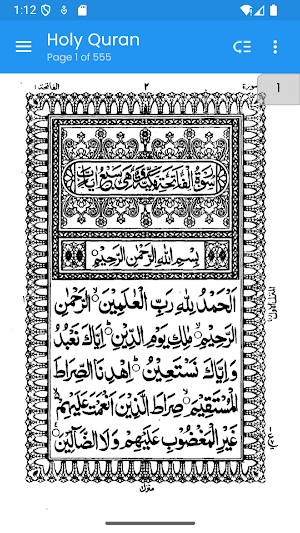 1:12
Holy Quran
Page 1 of 555
الفاتحة ١
٢
سورة
1
سُوْرَةُ الْفَاتِحَةِ مَكِّيَّةٌ وَّهِيَ سَبْعُ اٰيَاتٍ
بِسْمِ اللّٰهِ الرَّحْمٰنِ الرَّحِيْمِ
اَلْحَمْدُ لِلّٰهِ رَبِّ الْعٰلَمِيْنَ الرَّحْمٰنِ
الرَّحِيْمِ مٰلِكِ يَوْمِ الدِّيْنِ اِيَّاكَ نَعْبُدُ
وَاِيَّاكَ نَسْتَعِيْنُ اِهْدِنَا الصِّرَاطَ
الْمُسْتَقِيْمَ صِرَاطَ الَّذِيْنَ اَنْعَمْتَ عَلَيْهِمْ
غَيْرِ الْمَغْضُوْبِ عَلَيْهِمْ وَلَا الضَّآلِّيْنَ
منزل